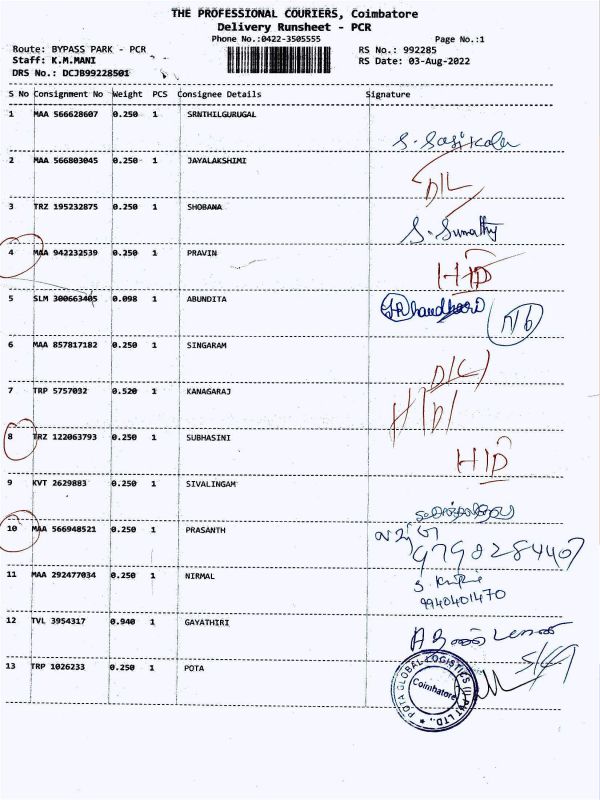 THE PROFESSIONAL COURIERS, Coimbatore
Delivery Runsheet - PCR
Phone No.:0422-3505555
Page No.:1
Route: BYPASS PARK - PCR
RS No.: 992285
Staff: K.M.MANI
RS Date: 03-Aug-2022
DRS No.: DCJB99228501
S No Consignment No Weight PCS Consignee Details Signature
1 MAA 566628607 0.250 1 SRNTHILGURUGAL
S. Sasikala
2 MAA 566803045 0.250 1 JAYALAKSHIMI
D/L
3 TRZ 195232875 0.250 1 SHOBANA
S. Sumathy
4 MAA 942232539 0.250 1 PRAVIN
HID
5 SLM 300663405 0.098 1 ABUNDITA
6 MAA 857817182 0.250 1 SINGARAM
D/C
7 TRP 5757032 0.520 1 KANAGARAJ
H/D/
8 TRZ 122063793 0.250 1 SUBHASINI
HID
9 KVT 2629883 0.250 1 SIVALINGAM
10 MAA 566948521 0.250 1 PRASANTH
9798284407
11 MAA 292477034 0.250 1 NIRMAL
9940401470
12 TVL 3954317 0.940 1 GAYATHIRI
13 TRP 1026233 0.250 1 POTA
POTA GLOBAL LOGISTICS (I) PVT LTD.,
Coimbatore